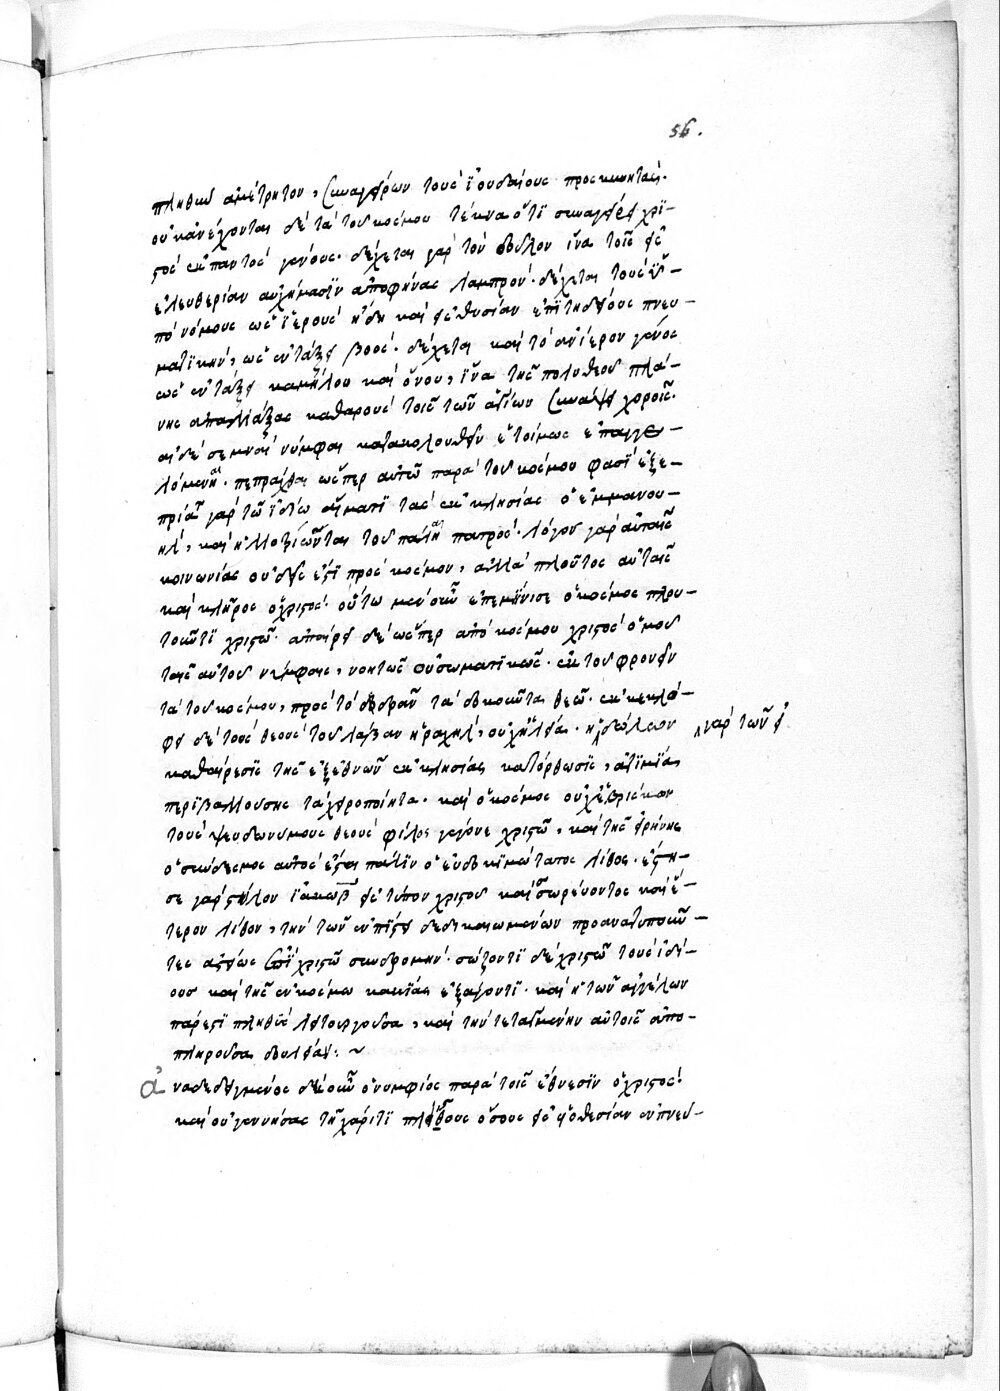 56.
πληθὺν ἀμέτρητον, συναγείρων τοὺς ἰουδαίους προσκυνητάς.
οὐκ ἀνέχονται δὲ τὰ τοῦ κόσμου τέκνα ὅτι συναγείρει χρι-
στὸς ἐκ παντὸς γένους. δέχεται γὰρ τὸν δοῦλον ἵνα τοῖς εἰς
ἐλευθερίαν αὐχήμασιν ἀποφήνας λαμπρόν. δέχεται τοὺς ὑ-
πὸ νόμους ὡς ἱεροὺς ἤδη καὶ εἰς θυσίαν ἐπιτηδείους πνευ-
ματικὴν, ὡς ἐν τάξει βοός. δέχεται καὶ τὸ ἀνίερον γένος
ὡς ἐν τάξει καμήλου καὶ ὄνου, ἵνα τῆς πολυθέου πλά-
νης ἀπαλλάξας καθαροὺς τοῖς τῶν ἁγίων συνάψῃ χοροῖς.
αἱ δὲ σεμναὶ νύμφαι κατακολουθεῖν ἑτοίμως ἐπαγγε-
λόμεναι. πεπρᾶχθαι ὥσπερ αὐτῶ παρὰ τοῦ κόσμου φασὶ ἐξε-
πρία γὰρ τῶ ἰδίω αἵματι τὰς ἐκκλησίας ὁ ἐμμανου-
ὴλ, καὶ ἠλλοτρίωνται τοῦ πάλαι πατρός. λόγου γὰρ αὐταῖς
κοινωνίας οὐδεὶς ἔτι πρὸς κόσμον, ἀλλὰ πλοῦτος αὐταῖς
καὶ κλῆρος ὁ χριστός. οὕτω μὲν οὖν ἐπεμήνισε ὁ κόσμος πλου-
τοῦντι χριστῶ. ἀπαίρει δὲ ὥσπερ ἀπὸ κόσμου χριστὸς ὁμοῦ
ταῖς αὐτοῦ νύμφαις, νοητῶς οὐ σωματικῶς. ἐκ τοῦ φρονεῖν
τὰ τοῦ κόσμου, πρὸς τὸ δρᾶν τὰ δοκοῦντα θεῶ. ἐκ κεκλο-
φε δὲ τοὺς θεοὺς τοῦ λάβαν ἡ ῥαχὴλ, οὐχ ἡ λεία. ἡ εἰδώλων
γὰρ τῶν εἰ
καθαίρεσις τῆς ἐξ ἐθνῶν ἐκκλησίας κατόρθωσις, ἀτιμίᾳ
περιβαλλούσης τὰ χειροποίητα. καὶ ὁ κόσμος οὐχ εὑρίσκων
τοὺς ψευδωνύμους θεοὺς φίλος γέγονε χριστῶ, καὶ τῆς εἰρήνης
ὁ σύνδεσμος αὐτὸς ἔσται πάλιν ὁ εὐδοκιμώτατος λίθος. ἔστη-
σε γὰρ στήλον ἰακὼβ εἰς τύπον χριστοῦ καὶ σωρεύοντος καὶ ἕ-
τερον λίθον, τὴν τῶν ἐν πίστει δεδικαιωμένων προανατυποῦν-
τες ἀστείως ἐπὶ χριστῶ συνδρομήν. σώζοντι δὲ χριστῶ τοὺς ἰδί-
ους καὶ τῆς ἐν κόσμω κακίας ἐξάγοντι. καὶ ἡ τῶν ἀγγέλων
πάρεστι πληθὺς λειτουργοῦσα, καὶ τὴν τεταγμένην αὐτοῖς ἀπο-
πληροῦσα δουλείαν: ~
ἀναδεδειγμένος δὲ οὖν ὁ νυμφίος παρὰ τοῖς ἔθνεσιν ὁ χριστὸς
καὶ οὐ γεννήσας τῆ χάριτι πλείους ὅσους εἰς υἱοθεσίαν ἐν πνεύ-